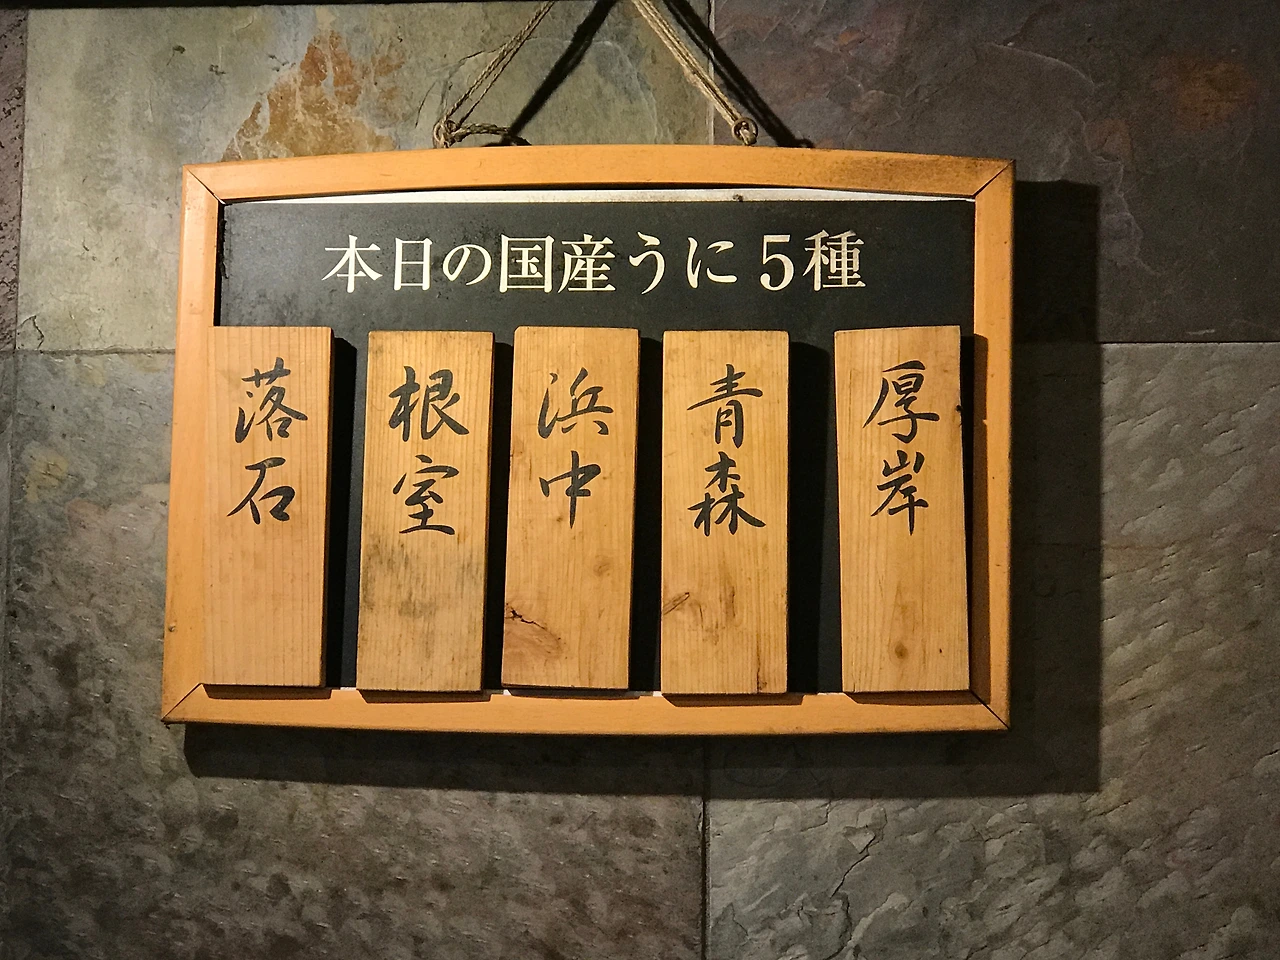 本日の国産うに5種
落石
根室
浜中
青森
厚岸